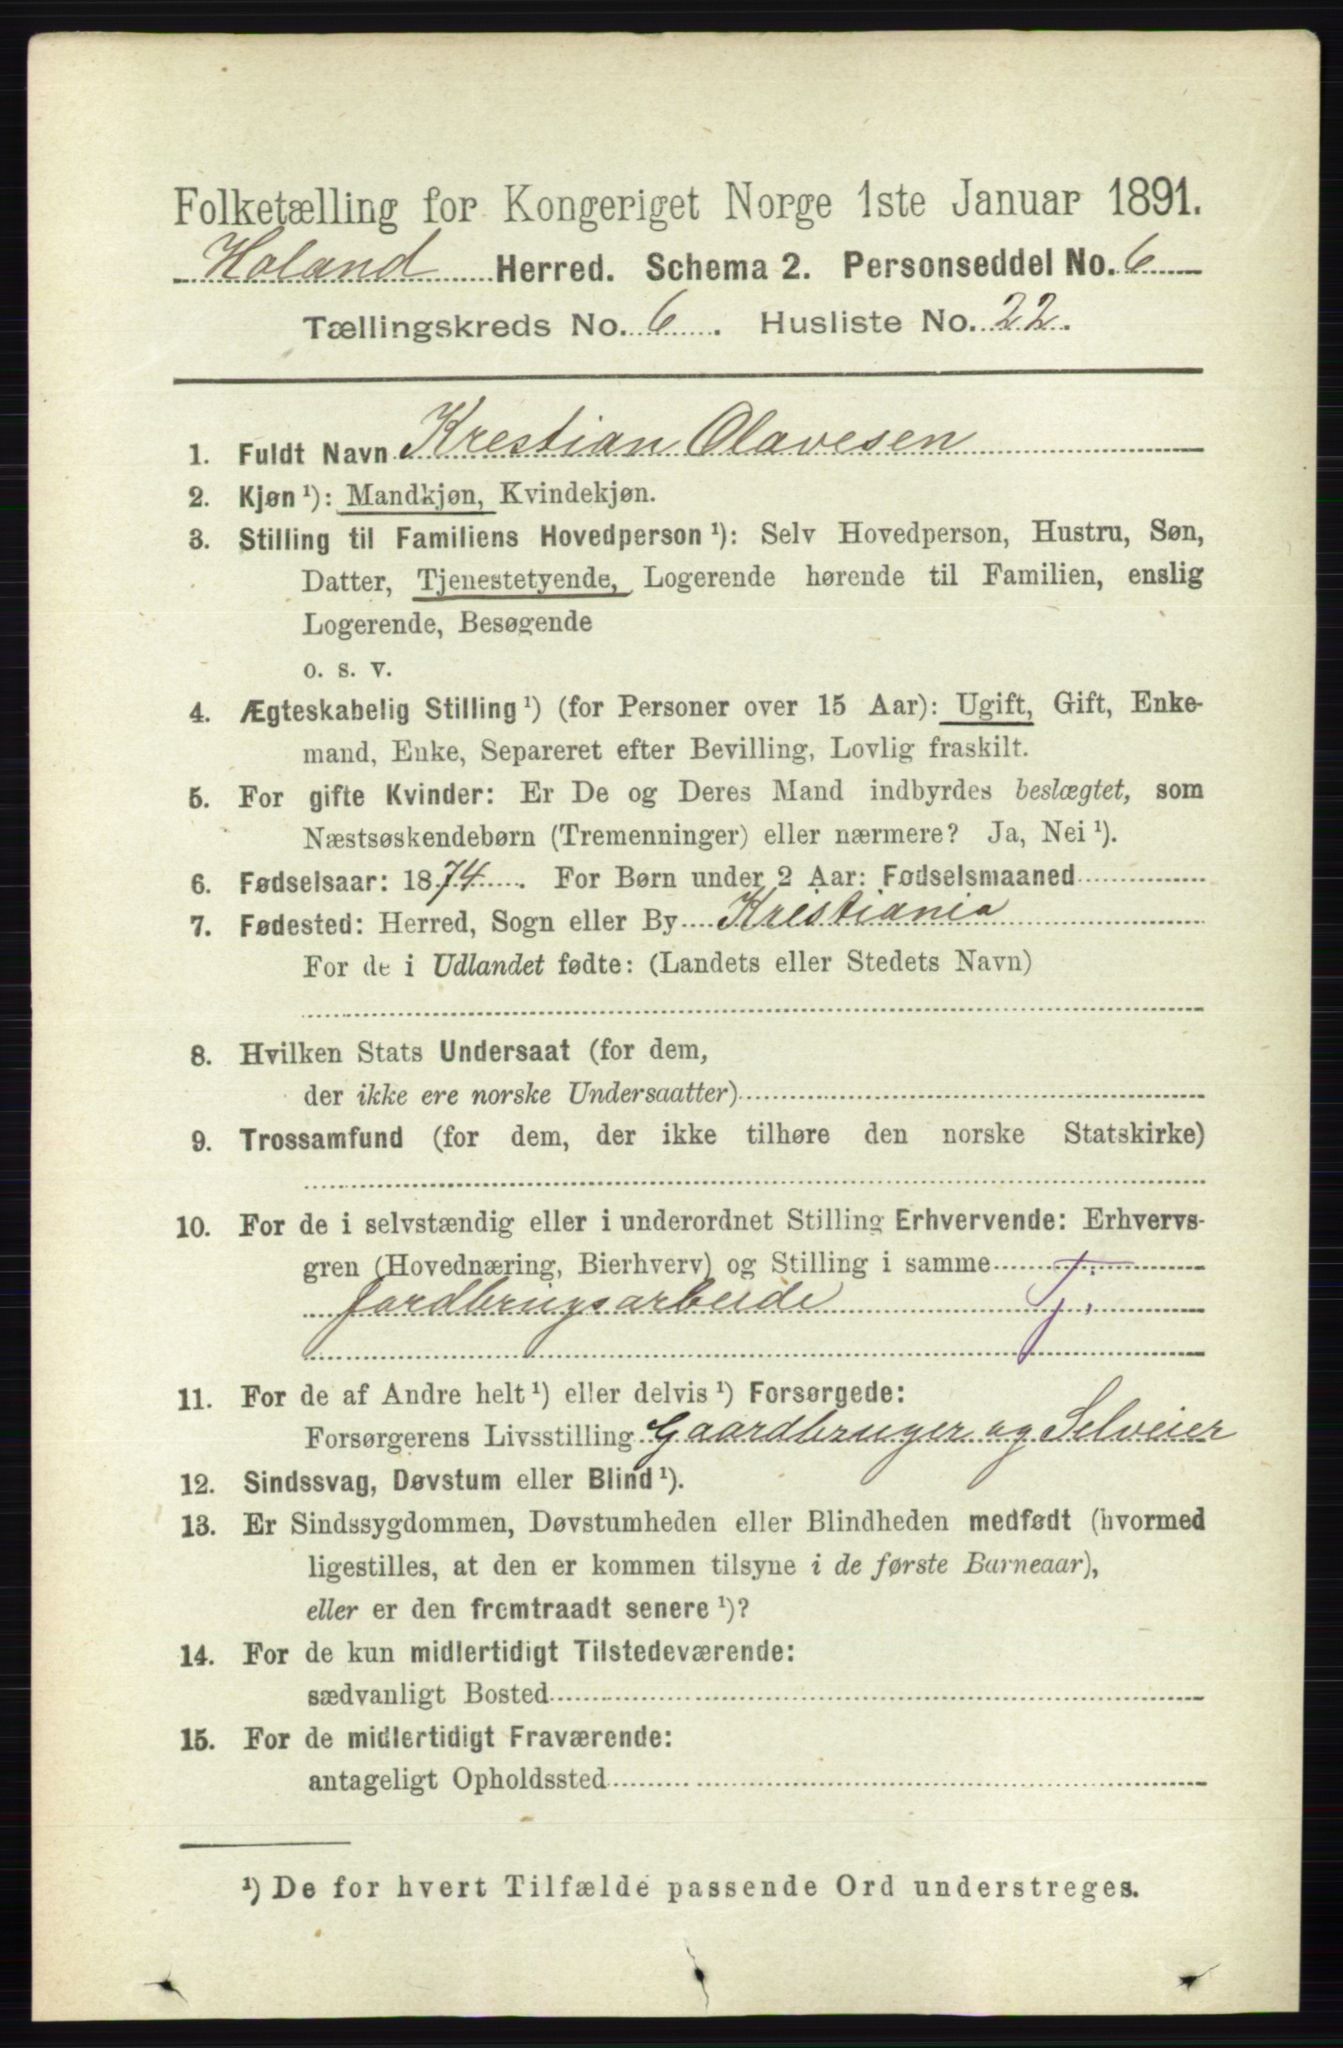 Folketælling for Kongeriget Norge 1ste Januar 1891.
Høland Herred. Schema 2. Personseddel No. 6
Tællingskreds No. 6. Husliste No. 22.
1. Fuldt Navn Krestian Olavesen
2. Kjøn ¹): Mandkjøn, Kvindekjøn.
3. Stilling til Familiens Hovedperson ¹): Selv Hovedperson, Hustru, Søn,
Datter, Tjenestetyende, Logerende hørende til Familien, enslig
Logerende, Besøgende
o. s. v.
4. Ægteskabelig Stilling ¹) (for Personer over 15 Aar): Ugift, Gift, Enke-
mand, Enke, Separeret efter Bevilling, Lovlig fraskilt.
5. For gifte Kvinder: Er De og Deres Mand indbyrdes beslægtet, som
Næstsøskendebørn (Tremenninger) eller nærmere? Ja, Nei ¹).
6. Fødselsaar: 1874. For Børn under 2 Aar: Fødselsmaaned
7. Fødested: Herred, Sogn eller By Kristiania
For de i Udlandet fødte: (Landets eller Stedets Navn)
8. Hvilken Stats Undersaat (for dem,
der ikke ere norske Undersaatter)
9. Trossamfund (for dem, der ikke tilhøre den norske Statskirke)
10. For de i selvstændig eller i underordnet Stilling Erhvervende: Erhvervs-
gren (Hovednæring, Bierhverv) og Stilling i samme
Jordbrugsarbeide Tj.
11. For de af Andre helt ¹) eller delvis ¹) Forsørgede:
Forsørgerens Livsstilling Gaardbruger og Selveier
12. Sindssvag, Døvstum eller Blind ¹).
13. Er Sindssygdommen, Døvstumheden eller Blindheden medfødt (hvormed
ligestilles, at den er kommen tilsyne i de første Barneaar),
eller er den fremtraadt senere ¹)?
14. For de kun midlertidigt Tilstedeværende:
sædvanligt Bosted
15. For de midlertidigt Fraværende:
antageligt Opholdssted
¹) De for hvert Tilfælde passende Ord understreges.